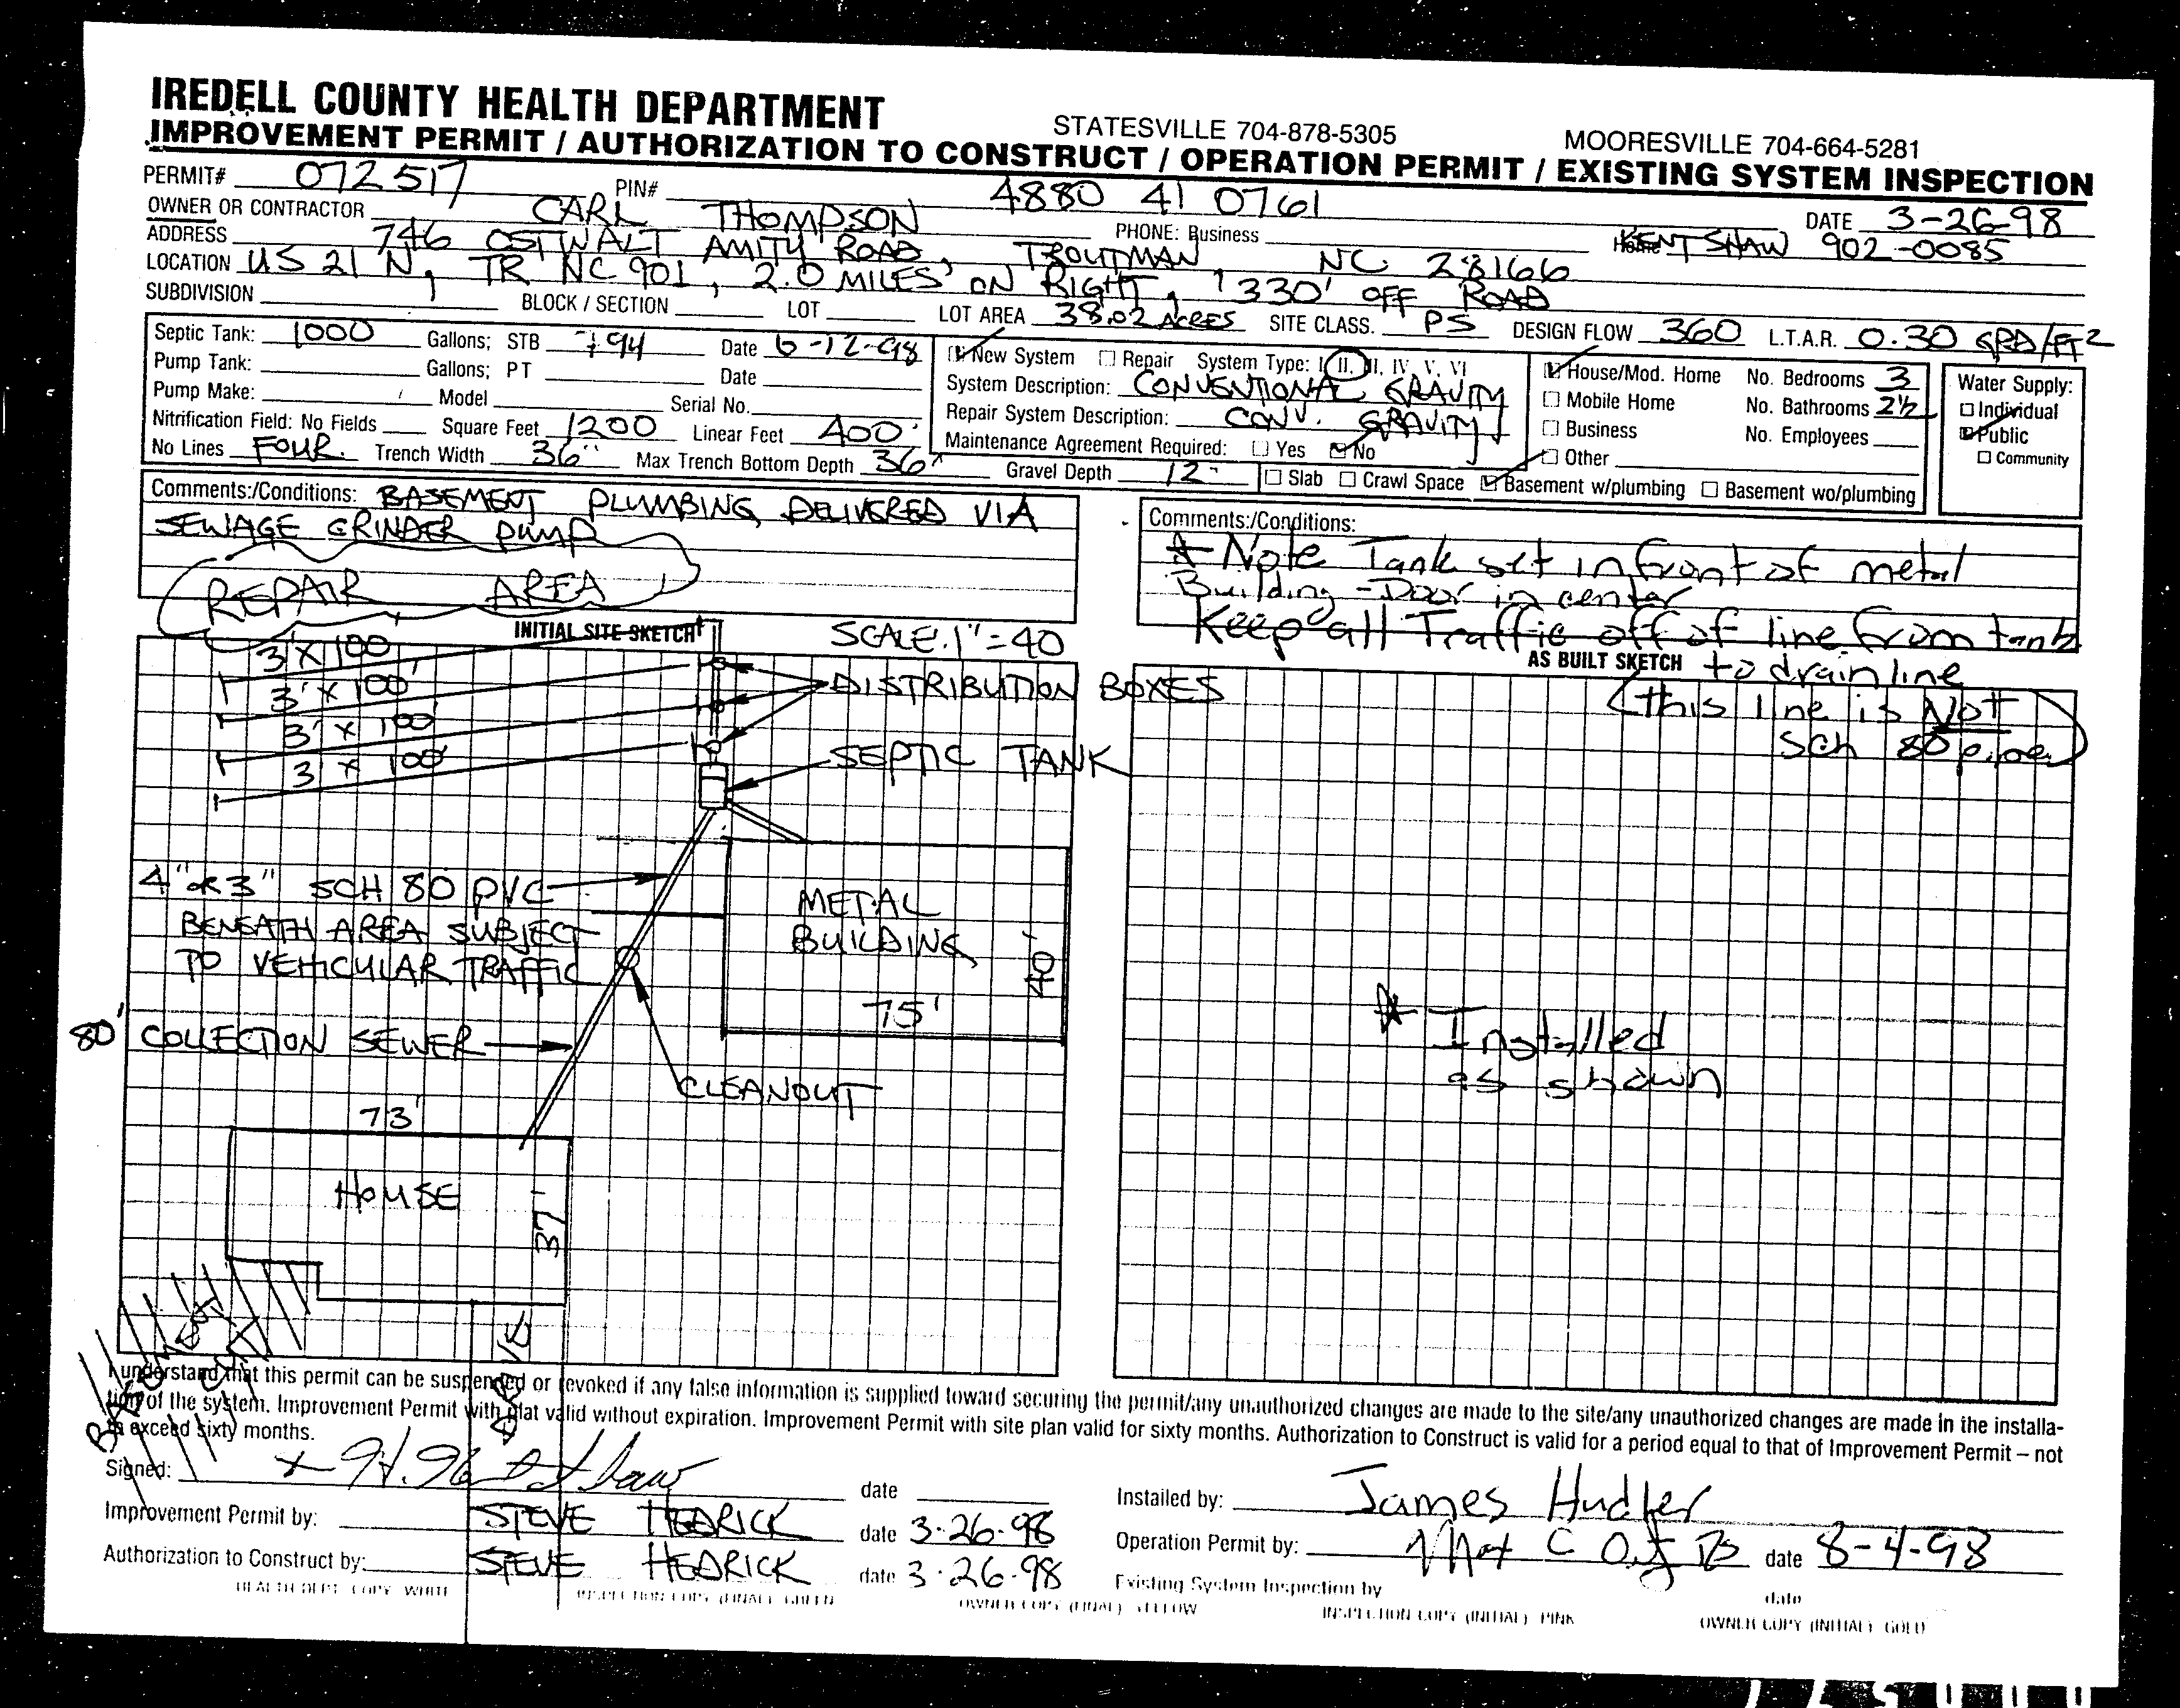 IREDELL COUNTY HEALTH DEPARTMENT
STATESVILLE 704-878-5305 MOORESVILLE 704-664-5281
IMPROVEMENT PERMIT / AUTHORIZATION TO CONSTRUCT / OPERATION PERMIT / EXISTING SYSTEM INSPECTION
PERMIT# 072517 PIN# 4880 41 0761 DATE 3-26-98
OWNER OR CONTRACTOR CARL THOMPSON PHONE: Business Home KENT SHAW 902-0085
ADDRESS 746 OSTWALT AMITY ROAD, TROUTMAN, NC 28166
LOCATION US 21 N, TR NC 901, 2.0 MILES ON RIGHT, 330' OFF ROAD
SUBDIVISION BLOCK / SECTION LOT LOT AREA 38.02 ACRES SITE CLASS. PS DESIGN FLOW 360 L.T.A.R. 0.30 GPD/FT2
Septic Tank: 1000 Gallons; STB 794 Date 6-12-98
Pump Tank: Gallons; PT Date
Pump Make: Model Serial No.
Nitrification Field: No Fields Square Feet 1200 Linear Feet 400'
No Lines FOUR. Trench Width 36" Max Trench Bottom Depth 36" Gravel Depth 12"
New System Repair System Type: I, II, III, IV, V, VI
System Description: CONVENTIONAL GRAVITY
Repair System Description: CONV. GRAVITY
Maintenance Agreement Required: Yes No
Slab Crawl Space Basement w/plumbing Basement wo/plumbing
House/Mod. Home No. Bedrooms 3
Mobile Home No. Bathrooms 2½
Business No. Employees
Other
Water Supply:
Individual
Public
Community
Comments:/Conditions: BASEMENT PLUMBING DELIVERED VIA
SEWAGE GRINDER PUMP
REPAIR AREA
Comments:/Conditions:
* Note Tank set in front of metal
Building - Door in center
Keep all Traffic off of line from tank
to drainline
(this line is Not
Sch 80 pipe)
INITIAL SITE SKETCH SCALE. 1"=40
AS BUILT SKETCH
3' X 100'
3' X 100'
3' X 100'
3' X 100'
DISTRIBUTION BOXES
SEPTIC TANK
4" OR 3" SCH 80 PVC
BENEATH AREA SUBJECT
TO VEHICULAR TRAFFIC
METAL
BUILDING
40'
75'
80' COLLECTION SEWER
CLEANOUT
73'
HOUSE
37'
DRIVE
* Installed
as shown
I understand that this permit can be suspended or revoked if any false information is supplied toward securing the permit/any unauthorized changes are made to the site/any unauthorized changes are made in the installa-
tion of the system. Improvement Permit with plat valid without expiration. Improvement Permit with site plan valid for sixty months. Authorization to Construct is valid for a period equal to that of Improvement Permit – not
to exceed sixty months.
Signed: date
Improvement Permit by: STEVE HEDRICK date 3-26-98
Authorization to Construct by: STEVE HEDRICK date 3-26-98
Installed by: James Hudler
Operation Permit by: date 8-4-98
Existing System Inspection by date
HEALTH DEPT. COPY WHITE INSPECTION COPY (FINAL) GREEN OWNER COPY (FINAL) YELLOW INSPECTION COPY (INITIAL) PINK OWNER COPY (INITIAL) GOLD